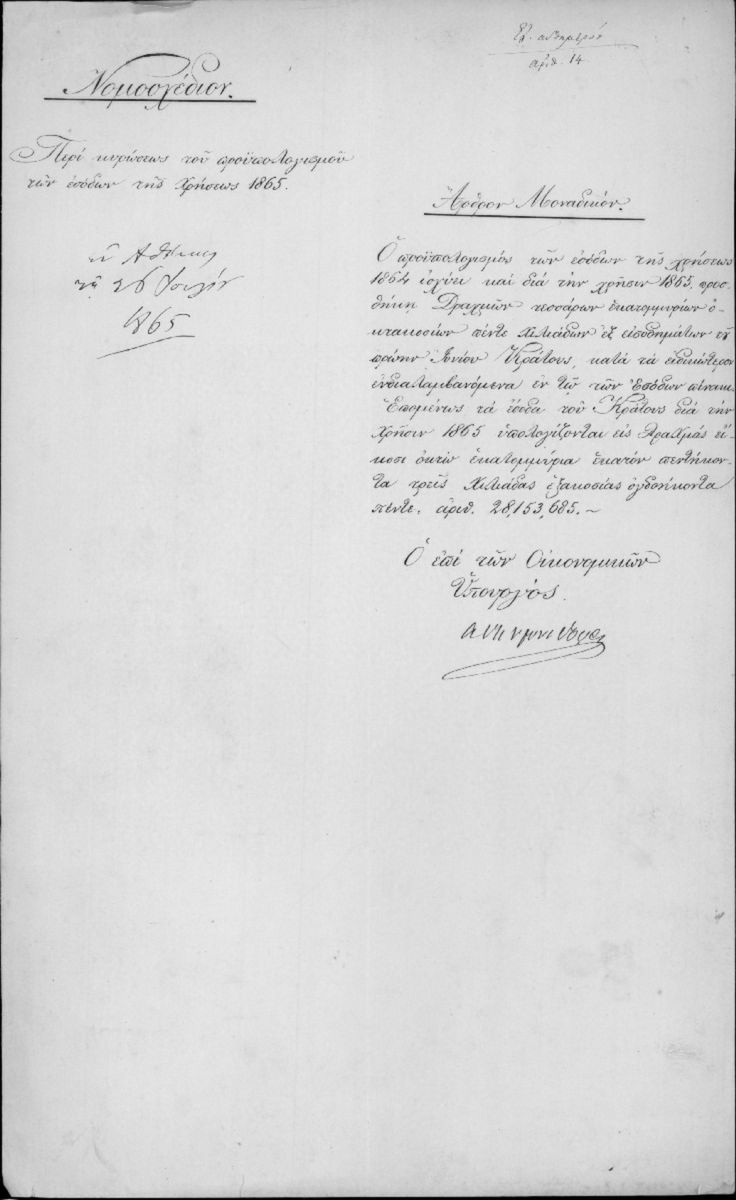 αριθ. 14.
Νομοσχέδιον.
Περί κυρώσεως τοῦ προϋπολογισμοῦ
τῶν ἐσόδων τῆς χρήσεως 1865.
ἐν Ἀθήναις
τῇ 26
1865
Ἄρθρον Μοναδικόν.
Ὁ προϋπολογισμός τῶν ἐσόδων τῆς χρήσεως
1864 ἰσχύει καί διά τήν χρῆσιν 1865, προσ-
θήκῃ Δραχμῶν τεσσάρων ἑκατομμυρίων ὀ-
κτακοσίων πέντε χιλιάδων ἐξ εἰσοδημάτων τοῦ
πρώην Ἰονίου Κράτους, κατά τά εἰδικώτερον
ἐνδιαλαμβανόμενα ἐν τῷ τῶν Ἐσόδων πίνακι.
Ἑπομένως τά ἔσοδα τοῦ Κράτους διά τήν
χρῆσιν 1865 ὑπολογίζονται εἰς Δραχμάς εἴ-
κοσι ὀκτώ ἑκατομμύρια ἑκατόν πεντήκον-
τα τρεῖς χιλιάδας ἑξακοσίας ὀγδοήκοντα
πέντε. ἀριθ. 28,153,685. ~
Ὁ ἐπί τῶν Οἰκονομικῶν
Ὑπουργός.